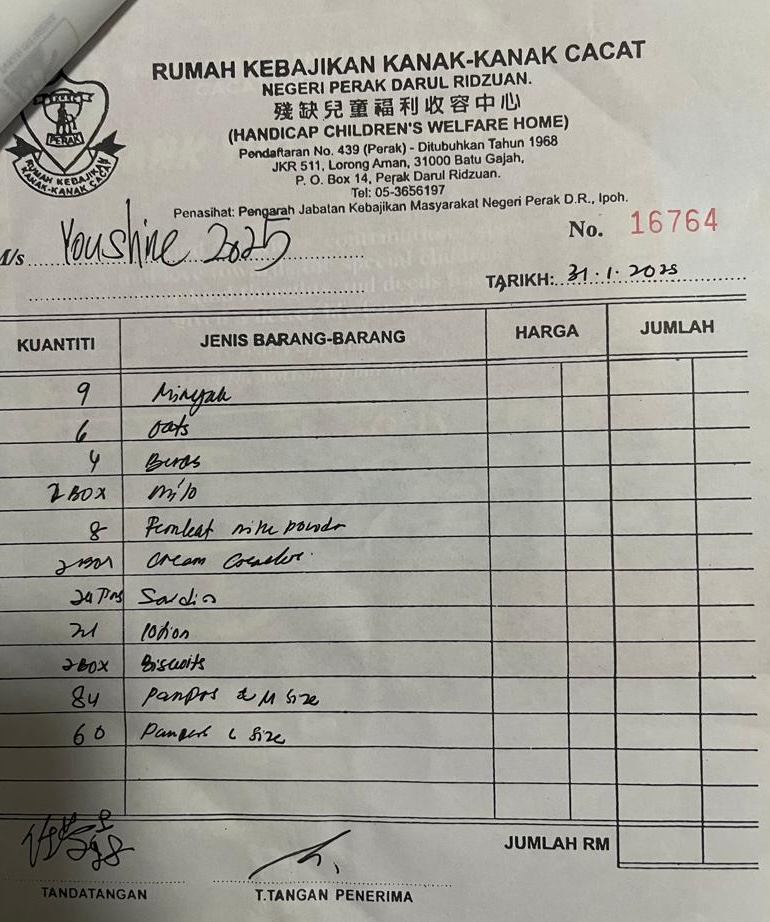 PERAK
RUMAH KEBAJIKAN
KANAK-KANAK CACAT
RUMAH KEBAJIKAN KANAK-KANAK CACAT
NEGERI PERAK DARUL RIDZUAN.
殘缺兒童福利收容中心
(HANDICAP CHILDREN'S WELFARE HOME)
Pendaftaran No. 439 (Perak) - Ditubuhkan Tahun 1968
JKR 511, Lorong Aman, 31000 Batu Gajah,
P. O. Box 14, Perak Darul Ridzuan.
Tel: 05-3656197
Penasihat: Pengarah Jabatan Kebajikan Masyarakat Negeri Perak D.R., Ipoh.
M/s Youshine 2025 No. 16764
TARIKH: 31.1.2025
KUANTITI JENIS BARANG-BARANG HARGA JUMLAH
9 Minyak
6 Oats
4 Beras
2 BOX milo
8 Fernleaf milk powder
2 BOX cream cracker
24 Tins Sardin
lotion
2 BOX Biscuits
84 M size
60 L size
JUMLAH RM
TANDATANGAN T.TANGAN PENERIMA